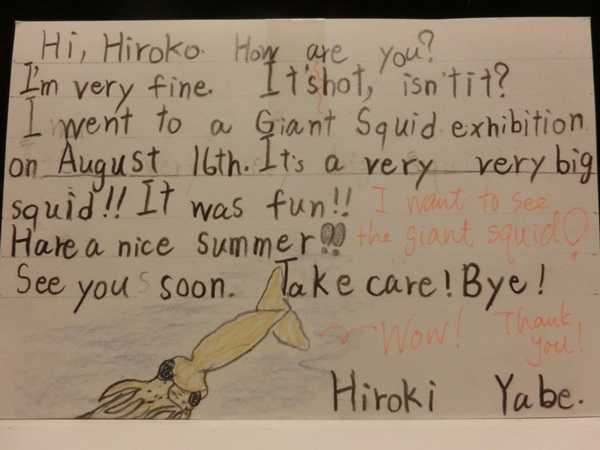 Hi, Hiroko. How are you?
I'm very fine. It's hot, isn't it?
I went to a Giant Squid exhibition
on August 16th. It's a very very big
squid!! It was fun!! I want to see
Have a nice summer!! the giant squid!
See you soon. Take care! Bye!
Wow! Thank you!
Hiroki Yabe.